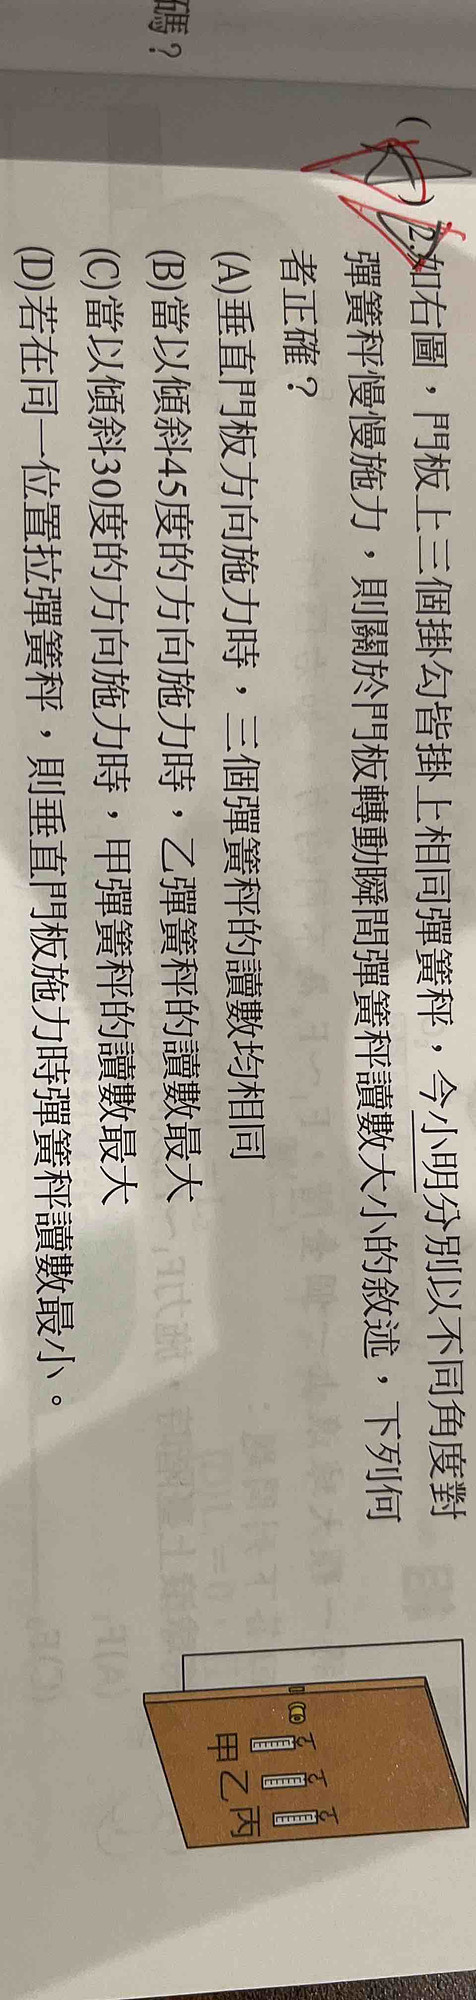 碼？
( )2.如右圖，門板上三個掛勾皆掛上相同彈簧秤，今小明分別以不同角度對
彈簧秤慢慢施力，則關於門板轉動瞬間彈簧秤讀數大小的敘述，下列何
者正確？
(A)垂直門板方向施力時，三個彈簧秤的讀數均相同
(B)當以傾斜45度的方向施力時，乙彈簧秤的讀數最大
(C)當以傾斜30度的方向施力時，甲彈簧秤的讀數最大
(D)若在同一位置拉彈簧秤，則垂直門板施力時彈簧秤讀數最小。
甲乙丙